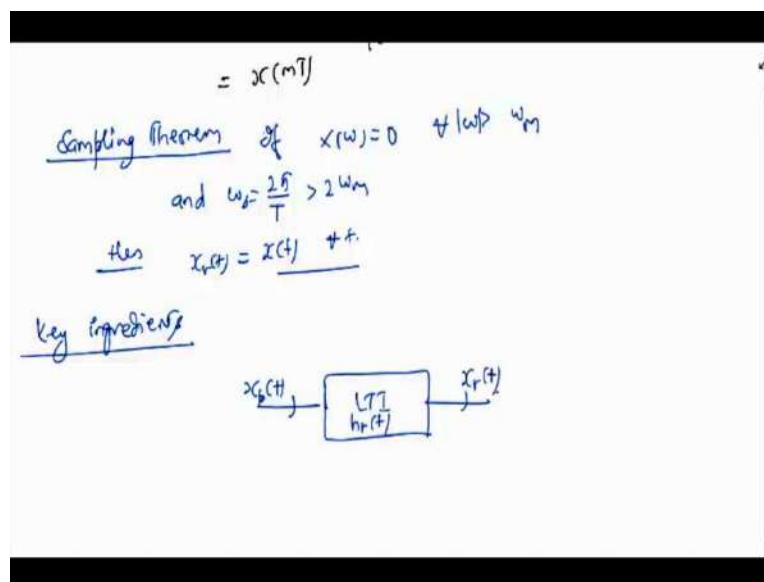 = x(mT)
Sampling Theorem If X(ω)=0 ∀ |ω|> ωm
and ωs= 2π/T > 2ωm
then xr(t) = x(t) ∀ t.
Key ingredients
xp(t) LTI xr(t)
hr(t)